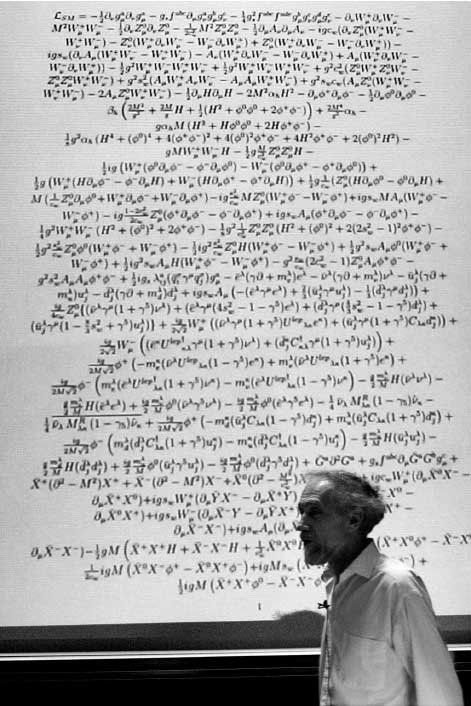 ℒ_SM = −½∂_ν g^a_μ ∂_ν g^a_μ − g_s f^{abc} ∂_μ g^a_ν g^b_μ g^c_ν − ¼g²_s f^{abc} f^{ade} g^b_μ g^c_ν g^d_μ g^e_ν − ∂_ν W⁺_μ ∂_ν W⁻_μ −
M² W⁺_μ W⁻_μ − ½∂_ν Z⁰_μ ∂_ν Z⁰_μ − 1/(2c²_w) M² Z⁰_μ Z⁰_μ − ½∂_μ A_ν ∂_μ A_ν − igc_w(∂_ν Z⁰_μ(W⁺_μ W⁻_ν −
W⁺_ν W⁻_μ) − Z⁰_ν(W⁺_μ ∂_ν W⁻_μ − W⁻_μ ∂_ν W⁺_μ) + Z⁰_μ(W⁺_ν ∂_ν W⁻_μ − W⁻_ν ∂_ν W⁺_μ)) −
igs_w(∂_ν A_μ(W⁺_μ W⁻_ν − W⁺_ν W⁻_μ) − A_ν(W⁺_μ ∂_ν W⁻_μ − W⁻_μ ∂_ν W⁺_μ) + A_μ(W⁺_ν ∂_ν W⁻_μ −
W⁻_ν ∂_ν W⁺_μ)) − ½g² W⁺_μ W⁻_μ W⁺_ν W⁻_ν + ½g² W⁺_μ W⁻_ν W⁺_μ W⁻_ν + g²c²_w(Z⁰_μ W⁺_μ Z⁰_ν W⁻_ν −
Z⁰_μ Z⁰_μ W⁺_ν W⁻_ν) + g²s²_w(A_μ W⁺_μ A_ν W⁻_ν − A_μ A_μ W⁺_ν W⁻_ν) + g²s_w c_w(A_μ Z⁰_ν(W⁺_μ W⁻_ν −
W⁺_ν W⁻_μ) − 2A_μ Z⁰_μ W⁺_ν W⁻_ν) − ½∂_μ H ∂_μ H − 2M² α_h H² − ∂_μ φ⁺ ∂_μ φ⁻ − ½∂_μ φ⁰ ∂_μ φ⁰ −
β_h (2M²/g² + 2M/g H + ½(H² + φ⁰φ⁰ + 2φ⁺φ⁻)) + 2M⁴/g² α_h −
gα_h M (H³ + Hφ⁰φ⁰ + 2Hφ⁺φ⁻) −
⅛g² α_h (H⁴ + (φ⁰)⁴ + 4(φ⁺φ⁻)² + 4(φ⁰)²φ⁺φ⁻ + 4H²φ⁺φ⁻ + 2(φ⁰)²H²) −
gM W⁺_μ W⁻_μ H − ½g M/c²_w Z⁰_μ Z⁰_μ H −
½ig (W⁺_μ(φ⁰∂_μ φ⁻ − φ⁻∂_μ φ⁰) − W⁻_μ(φ⁰∂_μ φ⁺ − φ⁺∂_μ φ⁰)) +
½g (W⁺_μ(H∂_μ φ⁻ − φ⁻∂_μ H) + W⁻_μ(H∂_μ φ⁺ − φ⁺∂_μ H)) + ½g 1/c_w (Z⁰_μ(H∂_μ φ⁰ − φ⁰∂_μ H) +
M (1/c_w Z⁰_μ ∂_μ φ⁰ + W⁺_μ ∂_μ φ⁻ + W⁻_μ ∂_μ φ⁺) − ig s²_w/c_w M Z⁰_μ(W⁺_μ φ⁻ − W⁻_μ φ⁺) + igs_w M A_μ(W⁺_μ φ⁻ −
W⁻_μ φ⁺) − ig (1−2c²_w)/(2c_w) Z⁰_μ(φ⁺∂_μ φ⁻ − φ⁻∂_μ φ⁺) + igs_w A_μ(φ⁺∂_μ φ⁻ − φ⁻∂_μ φ⁺) −
¼g² W⁺_μ W⁻_μ (H² + (φ⁰)² + 2φ⁺φ⁻) − ⅛g² 1/c²_w Z⁰_μ Z⁰_μ (H² + (φ⁰)² + 2(2s²_w − 1)²φ⁺φ⁻) −
½g² s²_w/c_w Z⁰_μ φ⁰(W⁺_μ φ⁻ + W⁻_μ φ⁺) − ½ig² s²_w/c_w Z⁰_μ H(W⁺_μ φ⁻ − W⁻_μ φ⁺) + ½g² s_w A_μ φ⁰(W⁺_μ φ⁻ +
W⁻_μ φ⁺) + ½ig² s_w A_μ H(W⁺_μ φ⁻ − W⁻_μ φ⁺) − g² s_w/c_w (2c²_w − 1)Z⁰_μ A_μ φ⁺φ⁻ −
g² s²_w A_μ A_μ φ⁺φ⁻ + ½ig_s λ^a_{ij}(q̄^σ_i γ^μ q^σ_j)g^a_μ − ē^λ(γ∂ + m^λ_e)e^λ − ν̄^λ(γ∂ + m^λ_ν)ν^λ − ū^λ_j(γ∂ +
m^λ_u)u^λ_j − d̄^λ_j(γ∂ + m^λ_d)d^λ_j + igs_w A_μ (−(ē^λγ^μ e^λ) + ⅔(ū^λ_j γ^μ u^λ_j) − ⅓(d̄^λ_j γ^μ d^λ_j)) +
ig/(4c_w) Z⁰_μ{(ν̄^λγ^μ(1 + γ⁵)ν^λ) + (ē^λγ^μ(4s²_w − 1 − γ⁵)e^λ) + (d̄^λ_j γ^μ(4/3 s²_w − 1 − γ⁵)d^λ_j) +
(ū^λ_j γ^μ(1 − 8/3 s²_w + γ⁵)u^λ_j)} + ig/(2√2) W⁺_μ ((ν̄^λγ^μ(1 + γ⁵)U^{lep}_{λκ} e^κ) + (ū^λ_j γ^μ(1 + γ⁵)C_{λκ} d^κ_j)) +
ig/(2√2) W⁻_μ ((ē^κ U^{lep†}_{κλ} γ^μ(1 + γ⁵)ν^λ) + (d̄^κ_j C†_{κλ} γ^μ(1 + γ⁵)u^λ_j)) +
ig/(2M√2) φ⁺ (−m^κ_e(ν̄^λ U^{lep}_{λκ}(1 − γ⁵)e^κ) + m^λ_ν(ν̄^λ U^{lep}_{λκ}(1 + γ⁵)e^κ) +
ig/(2M√2) φ⁻ (m^λ_e(ē^λ U^{lep†}_{λκ}(1 + γ⁵)ν^κ) − m^κ_ν(ē^λ U^{lep†}_{λκ}(1 − γ⁵)ν^κ) − g/2 m^λ_ν/M H(ν̄^λν^λ) −
g/2 m^λ_e/M H(ē^λe^λ) + ig/2 m^λ_ν/M φ⁰(ν̄^λγ⁵ν^λ) − ig/2 m^λ_e/M φ⁰(ē^λγ⁵e^λ) − ¼ ν̄_λ M^R_{λκ}(1 − γ₅)ν̂_κ −
¼ ν̄_λ M^R_{λκ}(1 − γ₅)ν̂_κ + ig/(2M√2) φ⁺ (−m^κ_d(ū^λ_j C_{λκ}(1 − γ⁵)d^κ_j) + m^λ_u(ū^λ_j C_{λκ}(1 + γ⁵)d^κ_j) +
ig/(2M√2) φ⁻ (m^λ_d(d̄^λ_j C†_{λκ}(1 + γ⁵)u^κ_j) − m^κ_u(d̄^λ_j C†_{λκ}(1 − γ⁵)u^κ_j) − g/2 m^λ_u/M H(ū^λ_j u^λ_j) −
g/2 m^λ_d/M H(d̄^λ_j d^λ_j) + ig/2 m^λ_u/M φ⁰(ū^λ_j γ⁵u^λ_j) − ig/2 m^λ_d/M φ⁰(d̄^λ_j γ⁵d^λ_j) + Ḡ^a∂²G^a + g_s f^{abc}∂_μ Ḡ^a G^b g^c_μ +
X̄⁺(∂² − M²)X⁺ + X̄⁻(∂² − M²)X⁻ + X̄⁰(∂² − M²/c²_w) + igc_w W⁺_μ(∂_μ X̄⁰X⁻ −
∂_μ X̄⁺X⁰) + igs_w W⁺_μ(∂_μ ȲX⁻ − ∂_μ X̄⁺Y)
∂_μ X̄⁰X⁺) + igs_w W⁻_μ(∂_μ X̄⁻Y − ∂_μ ȲX⁺)
∂_μ X̄⁻X⁻) + igs_w A_μ(∂_μ
∂_μ X̄⁻X⁻) − ½gM (X̄⁺X⁺H + X̄⁻X⁻H + 1/c²_w X̄⁰X⁰ (X̄⁺X⁰φ⁺ − X̄⁻X⁰φ⁻) +
1/(2c_w) igM (X̄⁰X⁻φ⁺ − X̄⁰X⁺φ⁻) + igMs_w (X̄
½igM (X̄⁺X⁺φ⁰ − X̄⁻X⁻φ
1